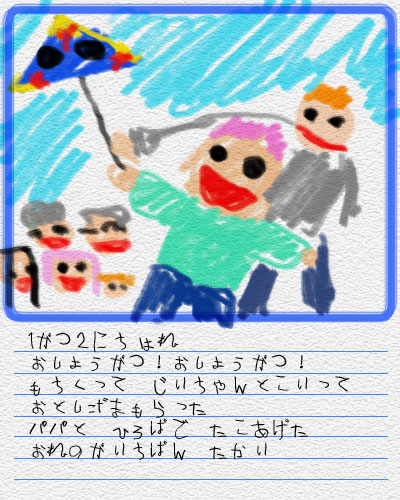 1がつ2にち はれ
おしょうがつ！おしょうがつ！
もちくって じいちゃんとこいって
おとしだまもらった
パパと ひろばで たこあげた
おれのがいちばん たかい